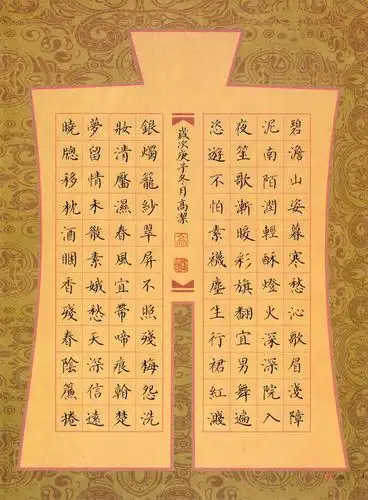 碧澹山姿暮寒愁沁歌眉淺障
泥南陌潤輕酥燈火深深院入
夜笙歌漸暖彩旗翻宜男舞遍
恣遊不怕素襪塵生行裙紅濺
銀燭籠紗翠屏不照殘梅怨洗
妝清靨濕春風宜帶啼痕翰楚
夢留情未散素娥愁天深信遠
曉牕移枕酒睏香殘春陰簾捲
歲次庚子冬月高潔